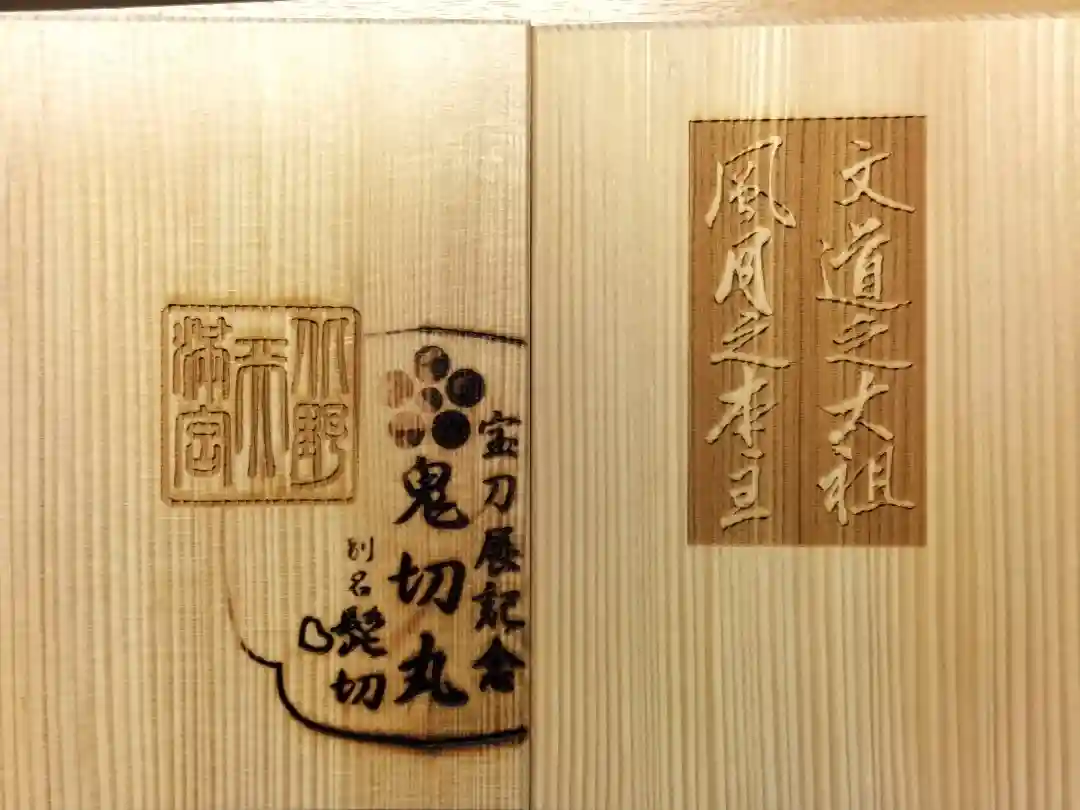 文道之大祖
風月之本主
宝刀展記念
鬼切丸
別名
髭切
北野
天
満宮